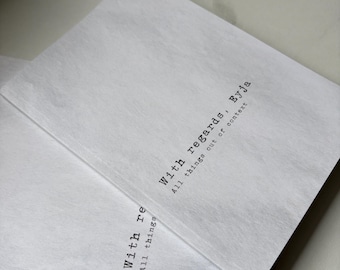 With regards, Eyja
All things out of context
With re
All things